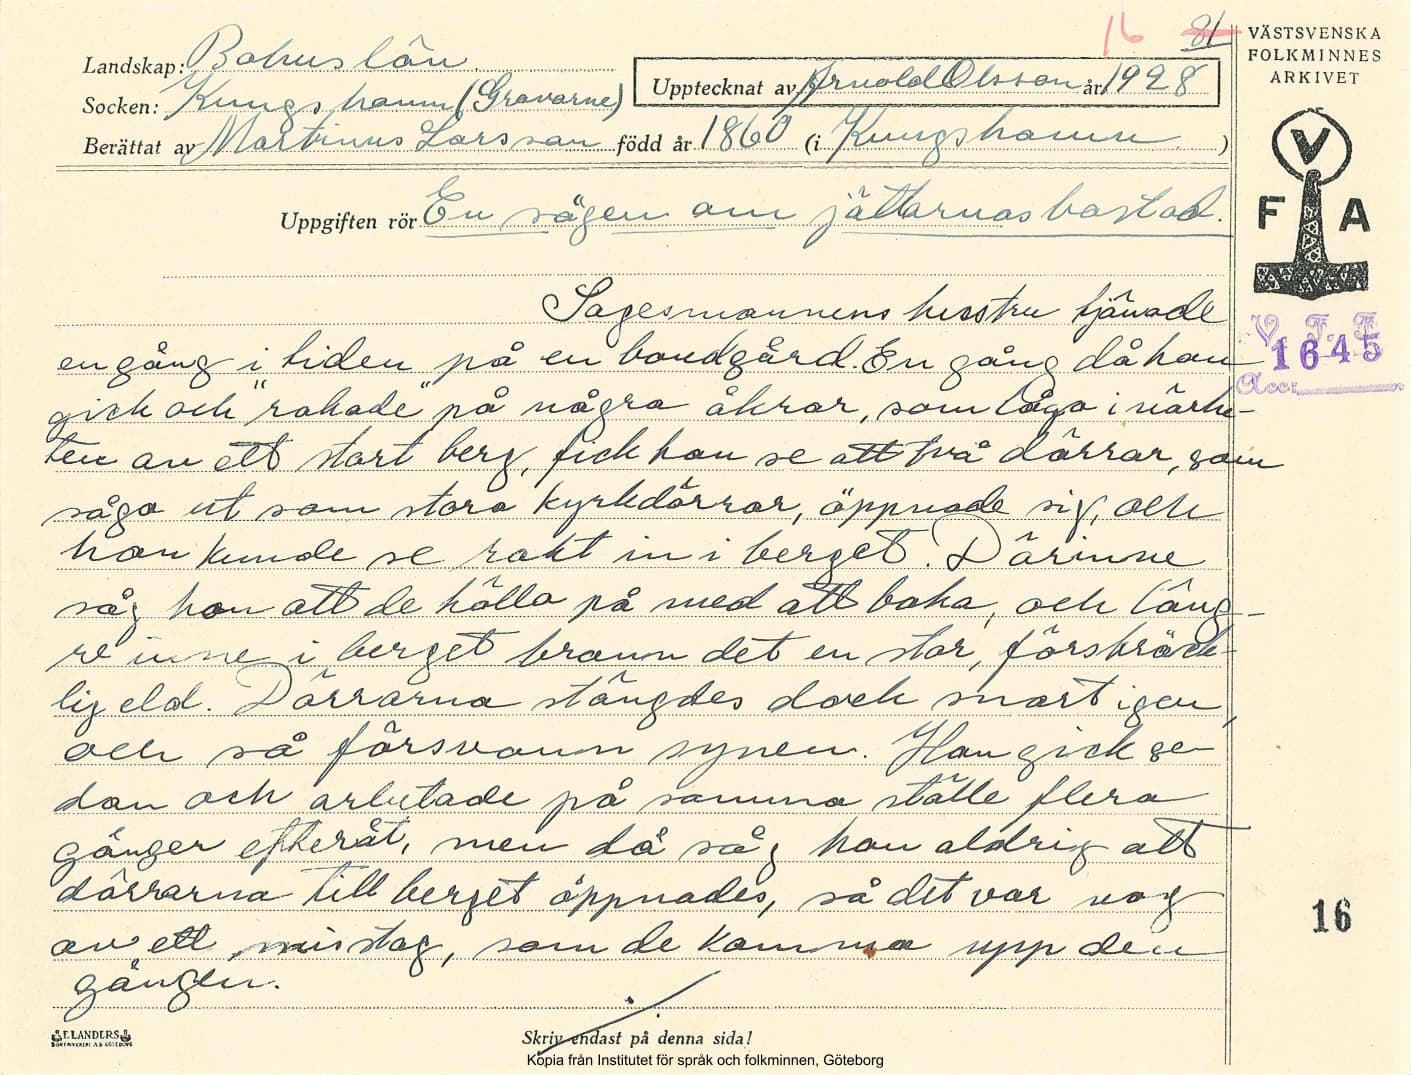 16 81
VÄSTSVENSKA
FOLKMINNES
ARKIVET
Landskap: Bohuslän
Socken: Kungshamn (Gravarne)
Upptecknat av Arnold Olsson år 1928
Berättat av Martinus Larsson född år 1860 (i Kungshamn.)
V
F A
Uppgiften rör En sägen om jättarnas bostad.
V. F. F.
1645
Acc:
Sagesmannens hustru tjänade
en gång i tiden på en bondgård. En gång då hon
gick och "rakade" på några åkrar, som lågo i närhe-
ten av ett stort berg, fick hon se att två dörrar, som
sågo ut som stora kyrkdörrar, öppnade sig, och
hon kunde se rakt in i berget. Därinne
såg hon att de höllo på med att baka, och läng-
re inne i berget brann det en stor, förskräck-
lig eld. Dörrarna stängdes dock snart igen,
och så försvann synen. Hon gick se-
dan och arbetade på samma ställe flera
gånger efteråt, men då såg hon aldrig att
dörrarna till berget öppnades, så det var nog
av ett misstag, som de kommo upp den
gången.
16
ELANDERS
Skriv endast på denna sida!
Kopia från Institutet för språk och folkminnen, Göteborg